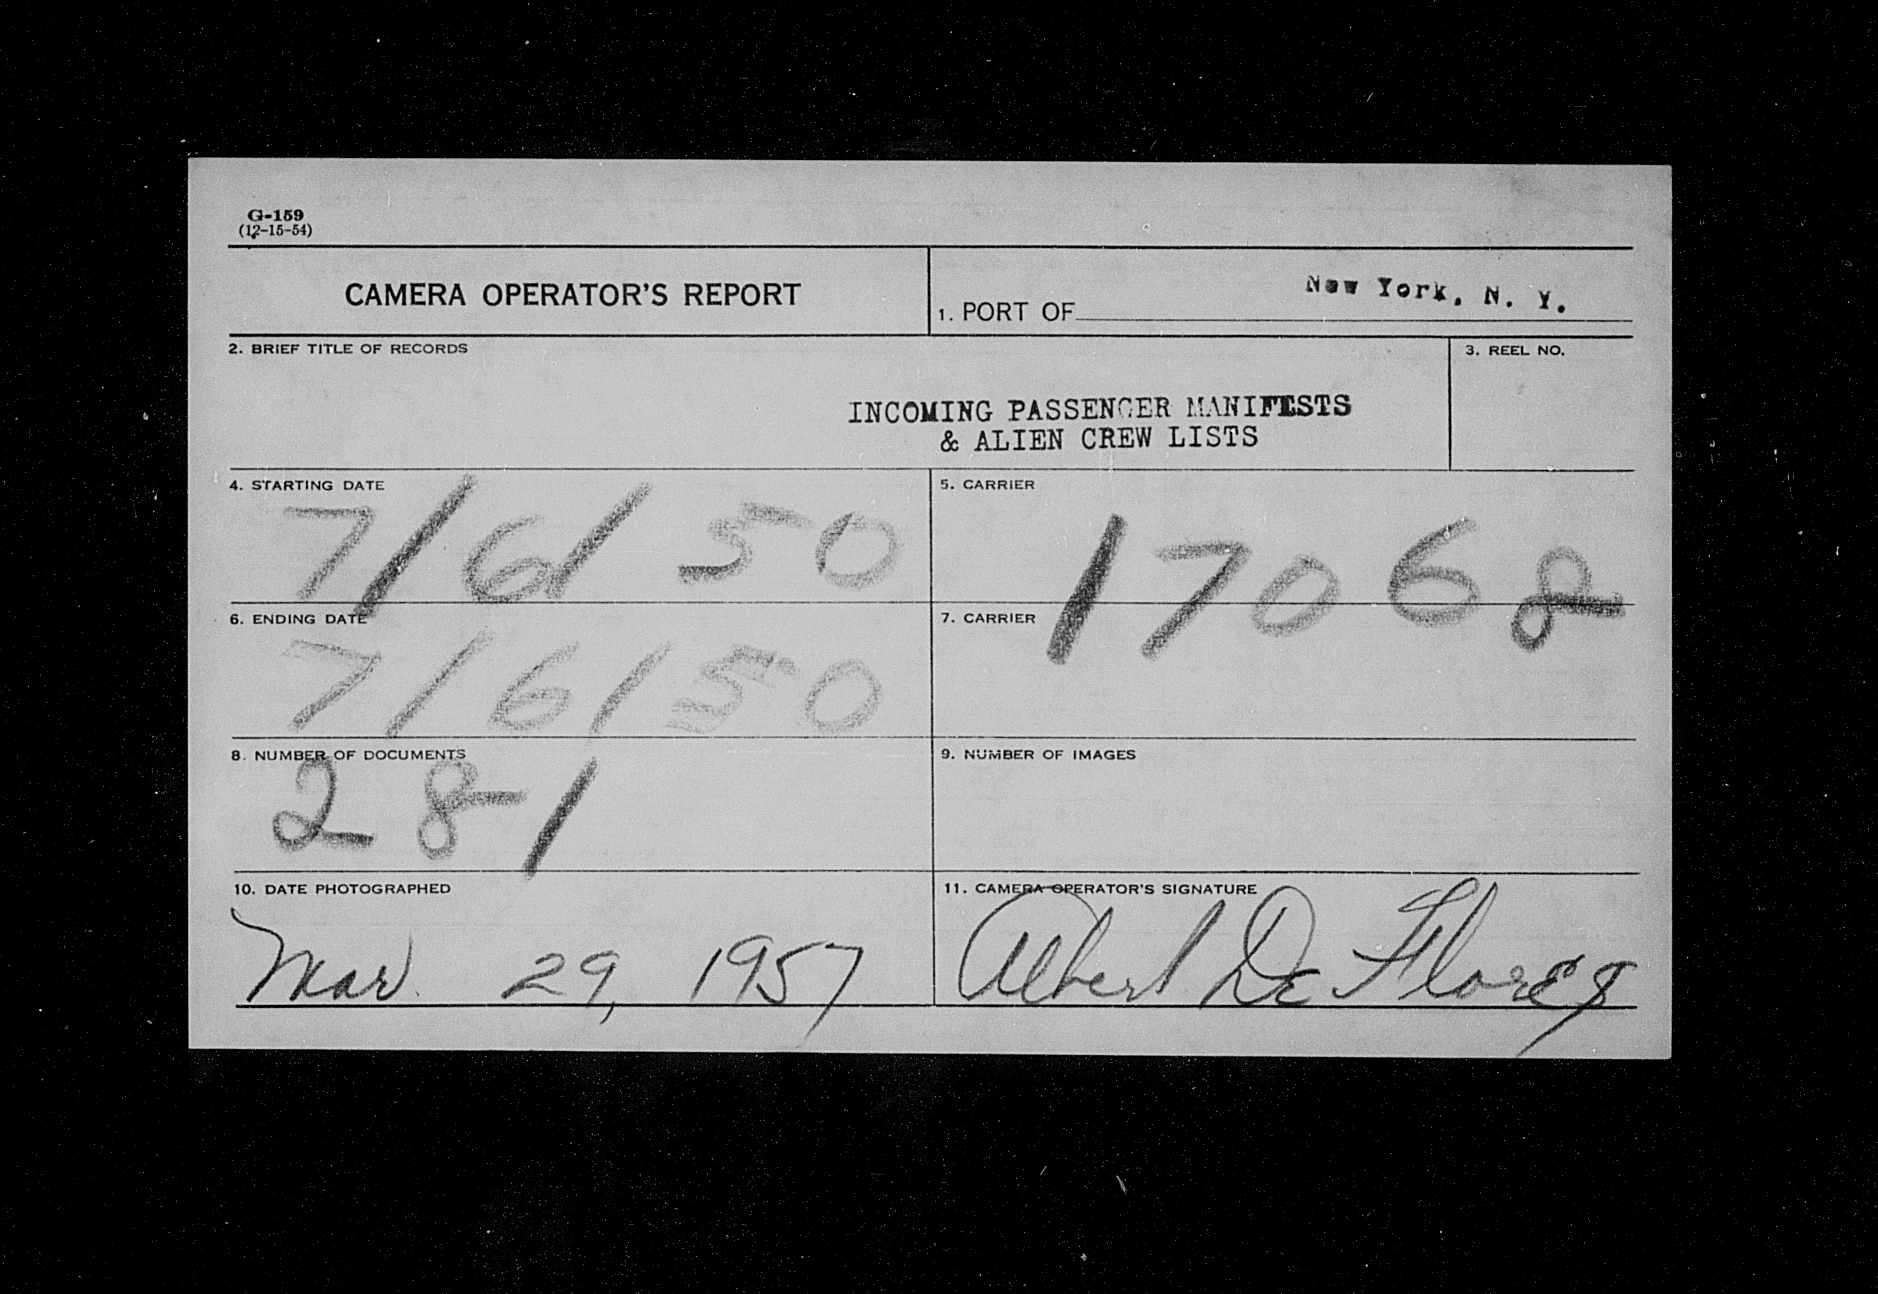 G-159
(12-15-54)
CAMERA OPERATOR'S REPORT
1. PORT OF New York, N. Y.
2. BRIEF TITLE OF RECORDS
3. REEL NO.
INCOMING PASSENGER MANIFESTS
& ALIEN CREW LISTS
4. STARTING DATE
7/6/50
5. CARRIER
17068
6. ENDING DATE
7/6/50
7. CARRIER
8. NUMBER OF DOCUMENTS
281
9. NUMBER OF IMAGES
10. DATE PHOTOGRAPHED
Mar 29, 1957
11. CAMERA OPERATOR'S SIGNATURE
Albert De Flores